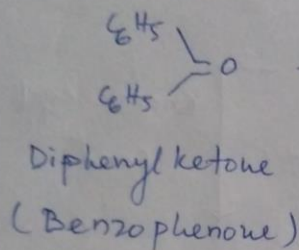 C6H5
O
C6H5
Diphenyl ketone
(Benzophenone)